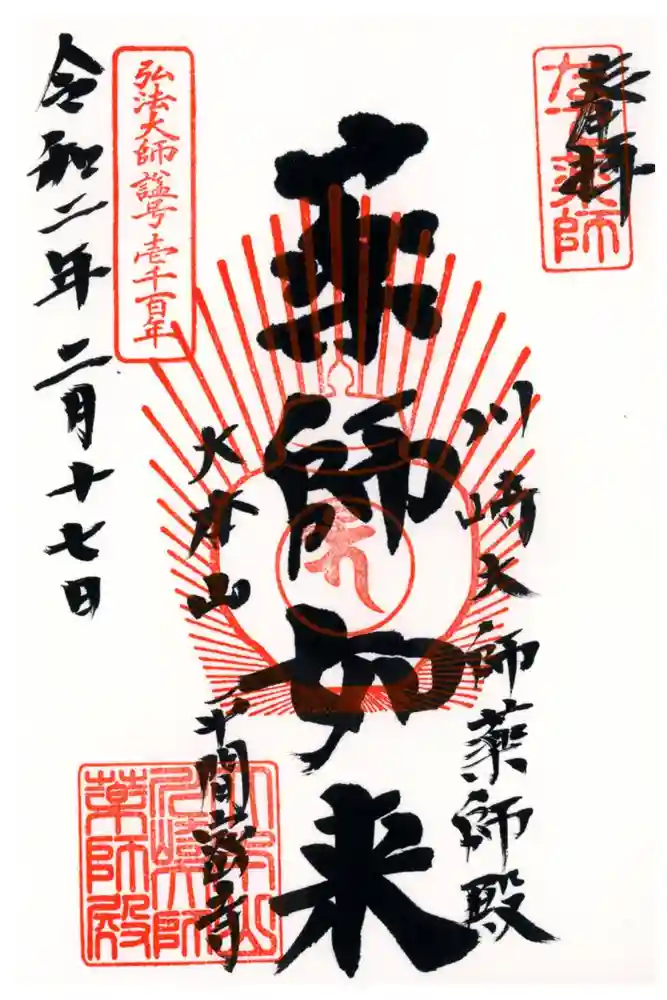 奉拝
なで薬師
川崎大師薬師殿
薬師如来
大本山
平間寺
大本山
川崎大師
薬師殿
弘法大師諡号壱千百年
令和二年二月十七日